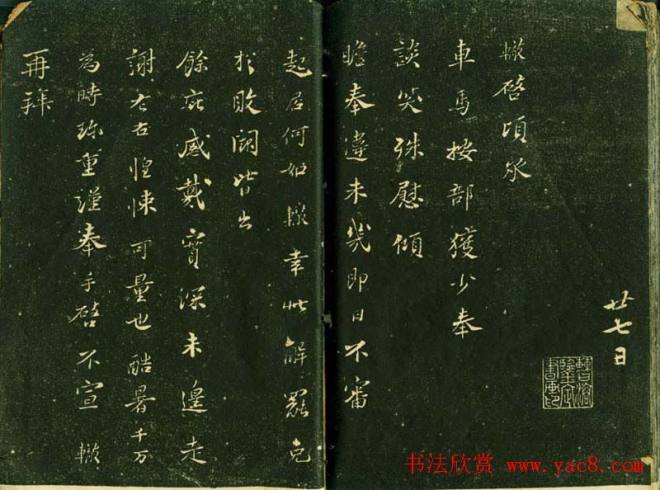 廿七日
轍啓頃承
車馬按部獲少奉
談笑殊慰傾
瞻奉違未幾即日不審
起居何如轍幸此解罷免
於敗闕皆出
餘庇感戴實深未遑走
謝左右惶悚可量也酷暑千万
為時珎重謹奉手啓不宣 轍
再拜
书法欣赏 www.yac8.com